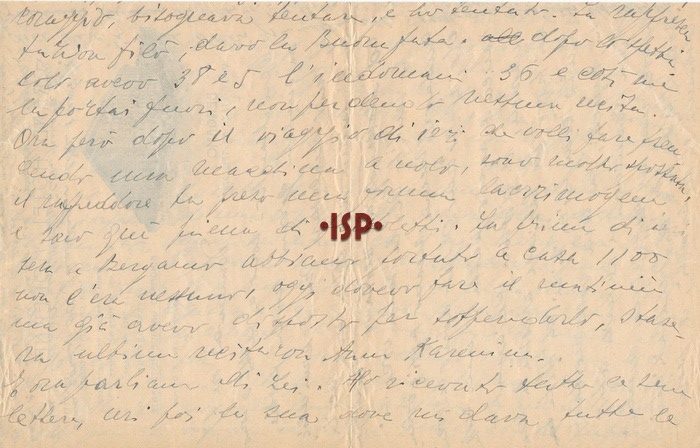 coraggio, bisognava tentare, e ho tentato. La rappresen
tazion filò, davo la Buonfuta. dopo lo spetta
colo avevo 38 e 5 l'indomani 36 e così me
la portai fuori, non perdendo nessuna recita.
Ora però dopo il viaggio di ieri che volli fare pren
dendo una macchina a nolo, sono molto spossata,
il raffreddore ha preso una forma lacrimogena
e sono qui piena di. La prima di ieri
sera a Bergamo abbiamo portato a casa 1100
non c'era nessuno, oggi dovevo fare il mattinée
ma già avevo disposto per sospenderlo, stase
ra ultima recita con Anna Karenine.
E ora parliamo di Lei. Ho ricevuto tutte le sue
lettere, ieri poi la sua dove mi dava tutte le
•ISP•